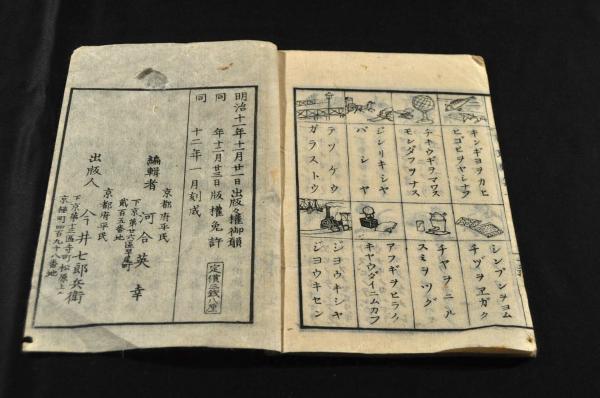 キンギヨヲカヒ
ヒゴヒヲヤシナフ
チキウギヲマワス
モンダフヲナス
ジンリキシヤ
バシヤ
テツケウ
ガラストウ
シンブンシヲヨム
チヅヲヱガク
チヤヲニル
スミヲツグ
アフギヲヒラク
キヤウダイニムカフ
ジヨウキシヤ
ジヨウキセン
明治十一年十一月廿一日出版々權御願
同 年十二月廿三日版權免許
同 十二年一月刻成
定價三銭八厘
京都府平民
編輯者 河合英幸
下京第廿六區
貳百五番地
京都府平民
出版人 今井七郎兵衛
下京第十二區寺町松原上ル
京極町四百九十八番地